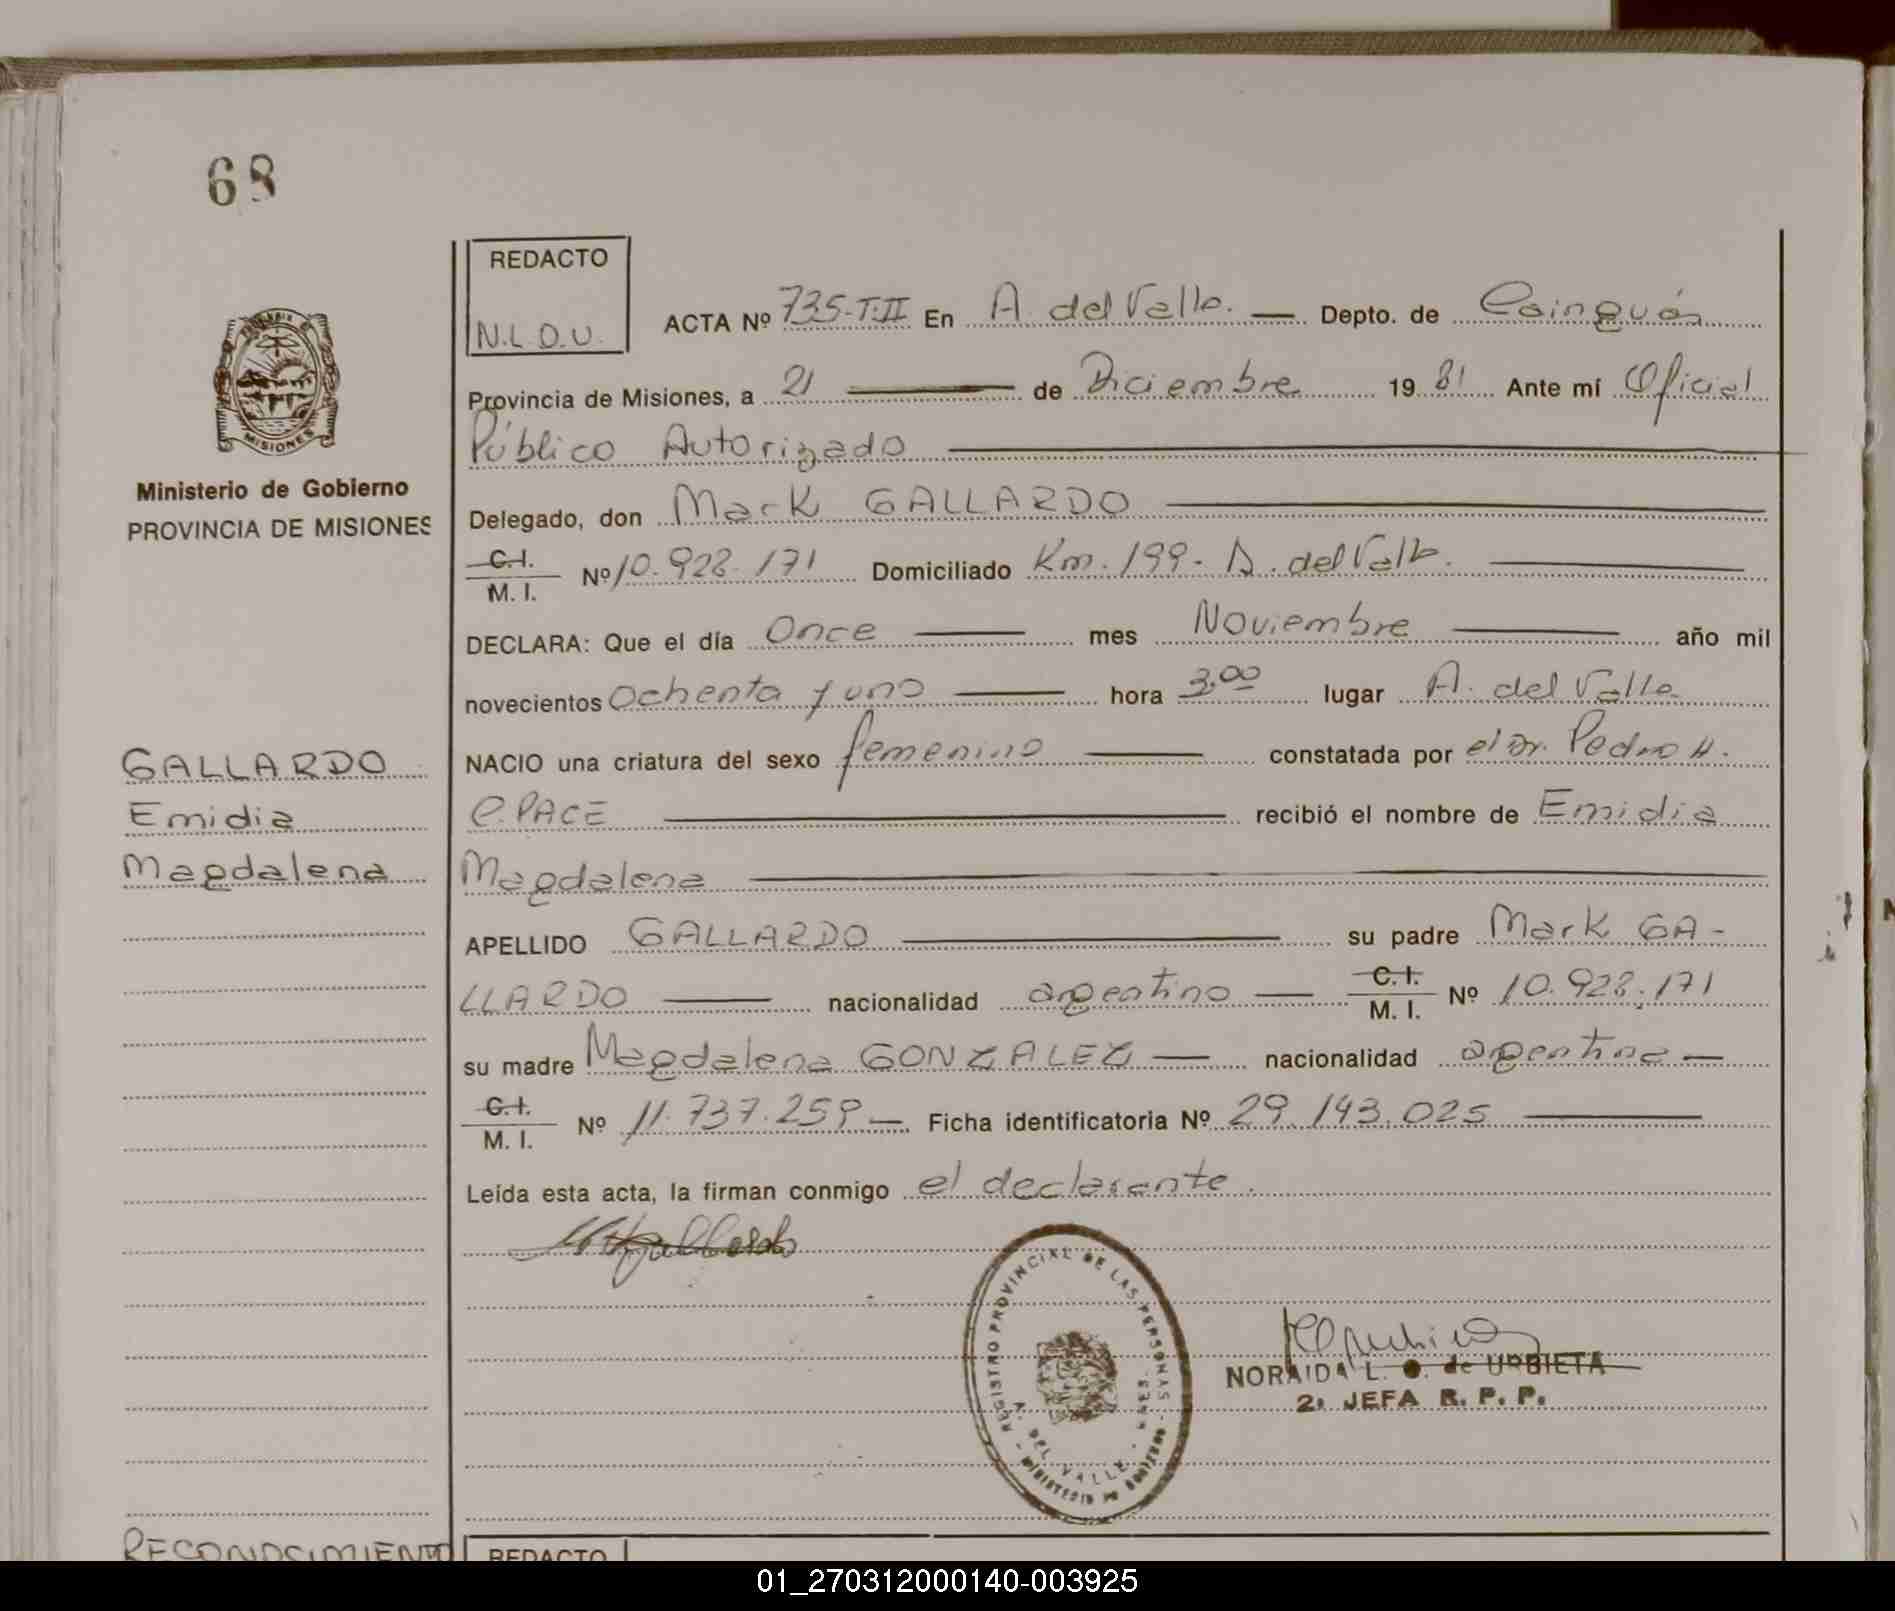 68
REDACTO
N.L.D.U.
ACTA Nº 735-T.II En A. del Valle. — Depto. de Cainguás
Provincia de Misiones, a 21 — de Diciembre 19 81 Ante mí Oficial
Público Autorizado
MISIONES
Ministerio de Gobierno
PROVINCIA DE MISIONES
Delegado, don Mark GALLARDO
C.I.
M. I. Nº 10.928.171 Domiciliado Km. 199- A. del Valle.
DECLARA: Que el día Once — mes Noviembre — año mil
novecientos Ochenta y uno — hora 3.00 lugar A. del Valle
NACIO una criatura del sexo femenino — constatada por el Dr. Pedro H.
C. PACE — recibió el nombre de Emidia
Magdalena
GALLARDO
Emidia
Magdalena
APELLIDO GALLARDO — su padre Mark GA-
LLARDO — nacionalidad argentino — C.I.
M. I. Nº 10.928.171
su madre Magdalena GONZALEZ — nacionalidad argentina —
C.I.
M. I. Nº 11.737.259 — Ficha identificatoria Nº 29.143.025 —
Leída esta acta, la firman conmigo el declarante.
REGISTRO PROVINCIAL DE LAS PERSONAS
A. DEL VALLE - MNES.
MINISTERIO DE GOBIERNO
NORAIDA L. O. de URBIETA
2ª JEFA R. P. P.
RECONOCIMIENTO
REDACTO
01_270312000140-003925